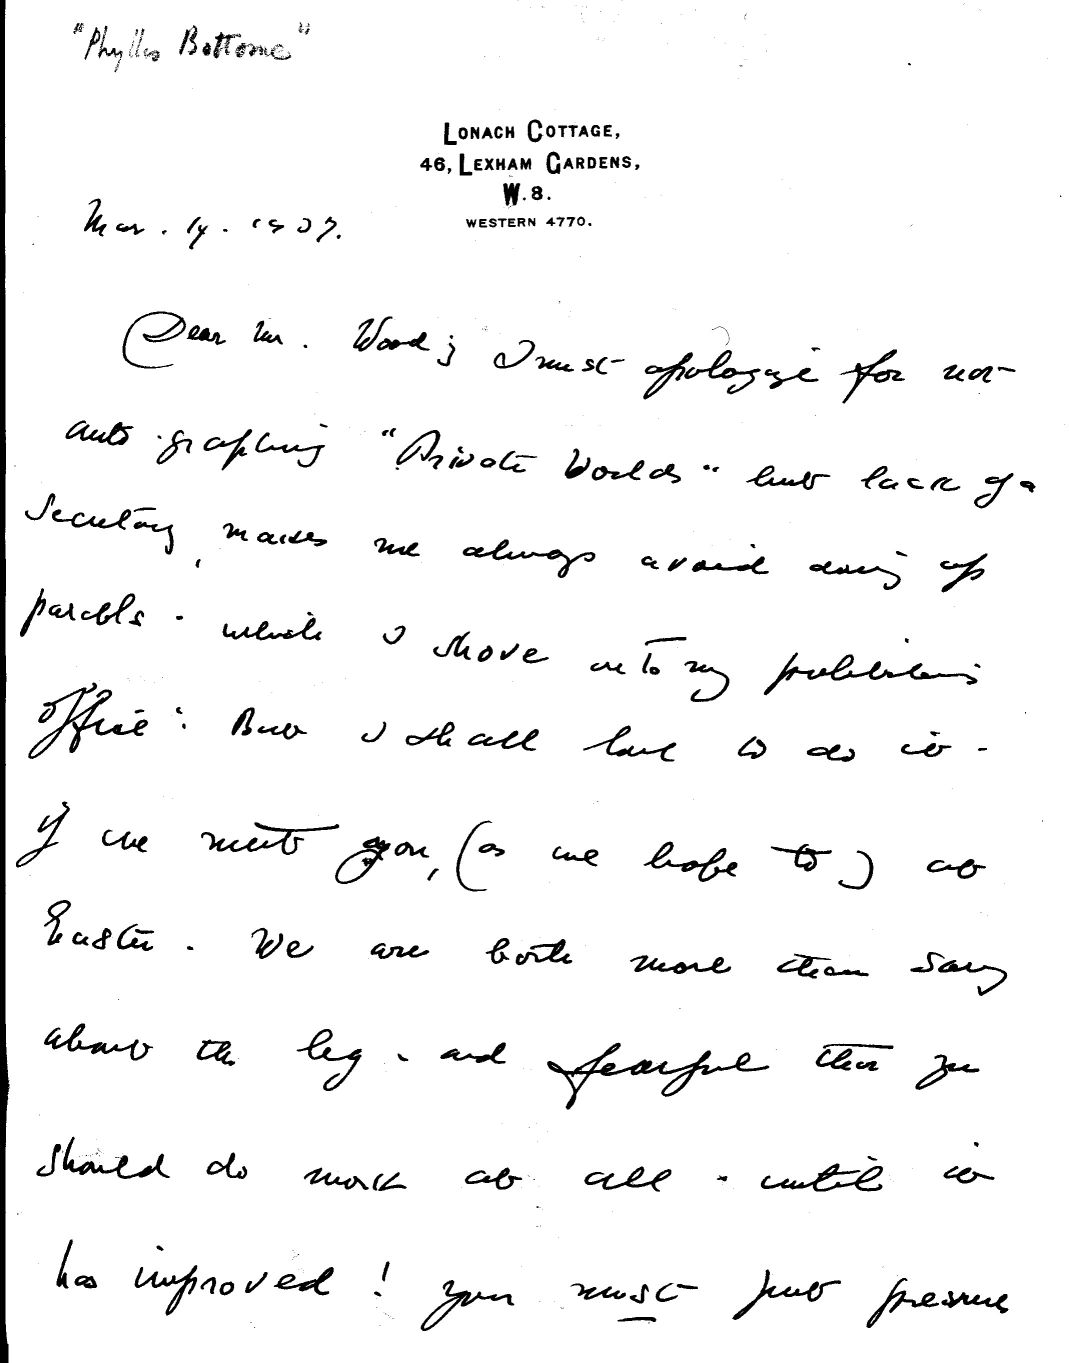 "Phyllis Bottome"
LONACH COTTAGE,
46, LEXHAM GARDENS,
W.8.
WESTERN 4770.
Mar. 14. 1937.
Dear Mr. Wood; I must apologize for not
autographing "Private Worlds" but lack of a
secretary, makes me always avoid doing up
parcels - which I shove onto my publishers
office: But I shall love to do it -
if we meet you, (as we hope to) at
Easter. We are both more than sorry
about the leg - and fearful that you
should do work at all - until it
has improved! You must put pressure